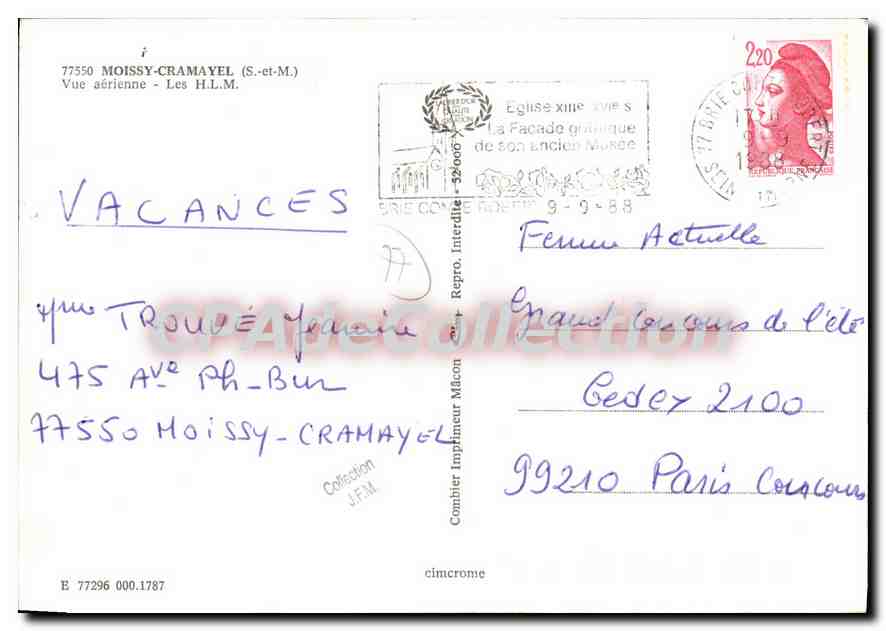 77550 MOISSY-CRAMAYEL (S.-et-M.)
Vue aérienne - Les H.L.M.
Eglise XIIIe XVIe S
La Façade gothique
de son ancien Musée
BRIE COMTE ROBERT 9-9-88
77 BRIE COMTE ROBERT
17 H
9-9
1988
SEINE
MARNE
2,20
REPUBLIQUE FRANÇAISE
VACANCES
77
Mme TROUVÉ Jeanine
475 Ave Ph-Bur
77550 MOISSY-CRAMAYEL
Collection
J.F.M.
Combier Imprimeur Mâcon
Repro. Interdite - 52 006
CPAdeCollection
Femme Actuelle
Grand Concours de l'été
Cedex 2100
99210 Paris Concours
cimcrome
E 77296 000.1787